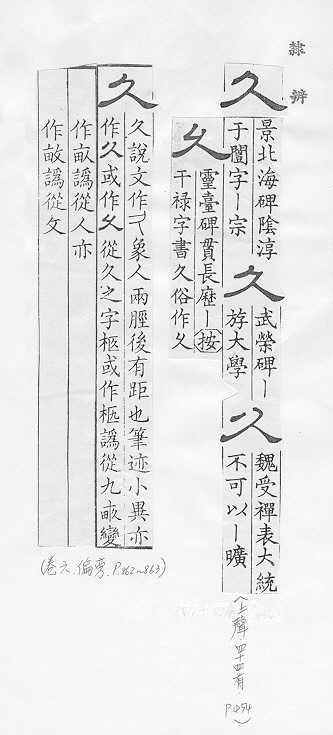 隸辨
久
景北海碑陰淳
于闓字ー宗
久
武榮碑ー
斿大學
久
魏受禪表大統
不可以ー曠
(上聲.四十四有 P.454)
夂
靈臺碑貫長歴ー按
干祿字書久俗作夂
久
久說文作乁象人兩脛後有距也筆迹小異亦
作久或作夂從久之字柩或作柩譌從九畝變
作畒譌從人亦
作敂譌從攵
(卷六.偏旁.P.862~863)